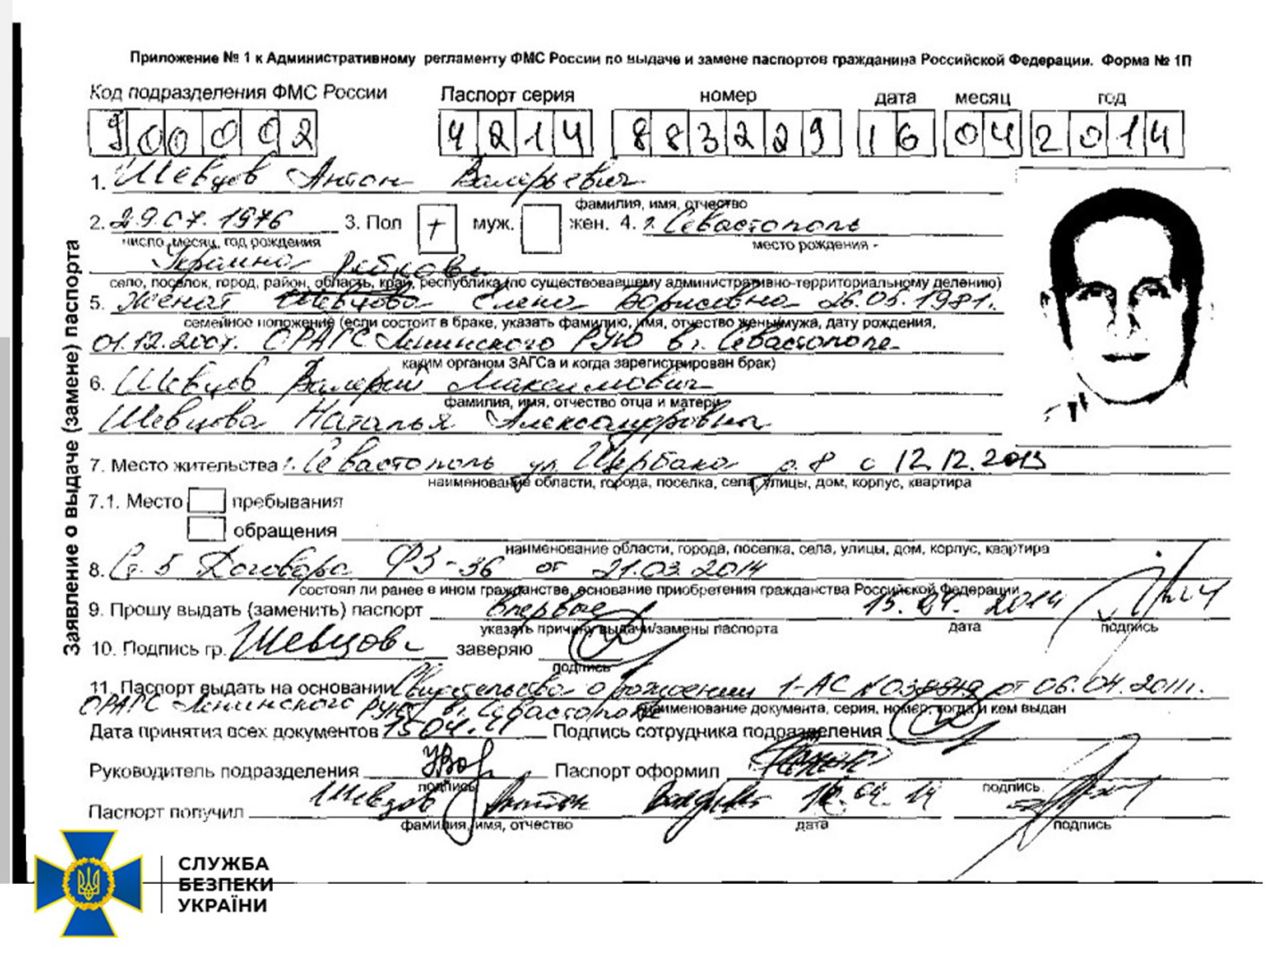 Приложение № 1 к Административному регламенту ФМС России по выдаче и замене паспортов гражданина Российской Федерации. Форма № 1П
Код подразделения ФМС России Паспорт серия номер дата месяц год
900002 4214 883229 16 04 2014
1. Шевцов Антон Валерьевич
фамилия, имя, отчество
2. 29.07.1976 3. Пол + муж. жен. 4. г. Севастополь
число, месяц, год рождения место рождения -
Украина
село, поселок, город, район, область, край, республика (по существовавшему административно-территориальному делению)
5. Женат Шевцова Елена Борисовна 26.05.1981г.
семейное положение (если состоит в браке, указать фамилию, имя, отчество жены/мужа, дату рождения,
01.12.2007г. ОРАГС Ленинского РУЮ в г. Севастополе
каким органом ЗАГСа и когда зарегистрирован брак)
6. Шевцов Валерий Максимович
фамилия, имя, отчество отца и матери
Шевцова Наталья Александровна
7. Место жительства г. Севастополь ул. Щербака д. 8 с 12.12.2013
наименование области, города, поселка, села, улицы, дом, корпус, квартира
7.1. Место пребывания
обращения
наименование области, города, поселка, села, улицы, дом, корпус, квартира
8. Ст. 5 Договора ФЗ-36 от 21.03.2014
состоял ли ранее в ином гражданстве, основание приобретения гражданства Российской Федерации
9. Прошу выдать (заменить) паспорт впервые 15.04.2014
указать причину выдачи/замены паспорта дата подпись
10. Подпись гр. Шевцов заверяю
подпись
11. Паспорт выдать на основании Свидетельства о рождении 1-АС от 06.04.2011г.
ОРАГС Ленинского РУЮ в г. Севастополе наименование документа, серия, номер, когда и кем выдан
Дата принятия всех документов 15.04.14 Подпись сотрудника подразделения
Руководитель подразделения Паспорт оформил
подпись подпись.
Паспорт получил Шевцов Антон 16.04.14
фамилия, имя, отчество дата подпись
Заявление о выдаче (замене) паспорта
СЛУЖБА
БЕЗПЕКИ
УКРАЇНИ